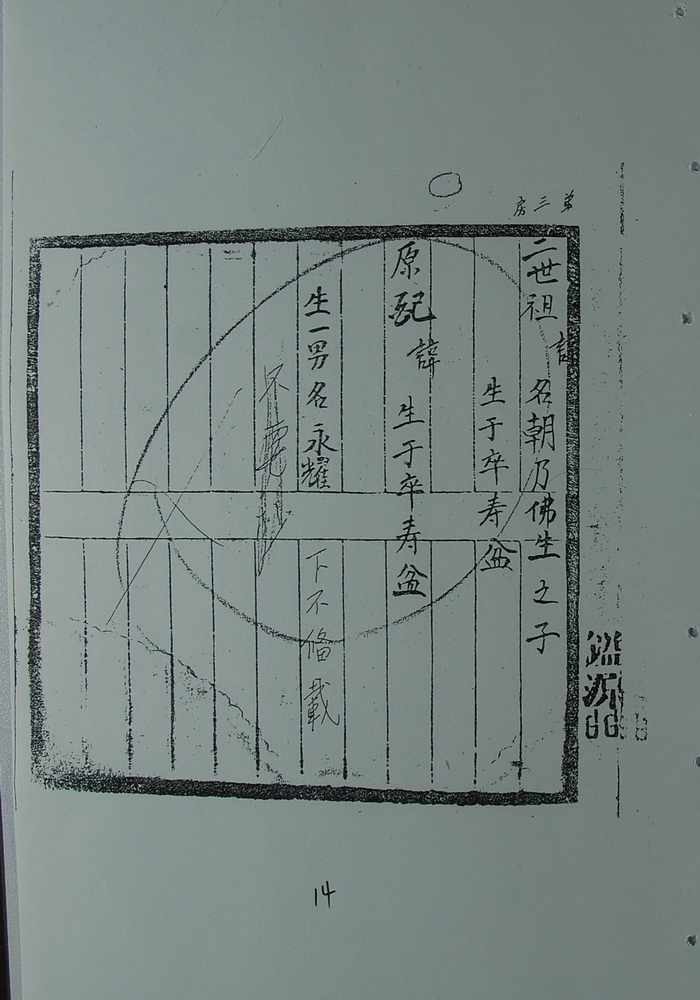 弟三房
二世祖 諱 名朝乃佛生之子
生于卒寿盆
原配 諱 生于卒寿盆
生一男名永耀 下不俻載
不要
鑑源
14